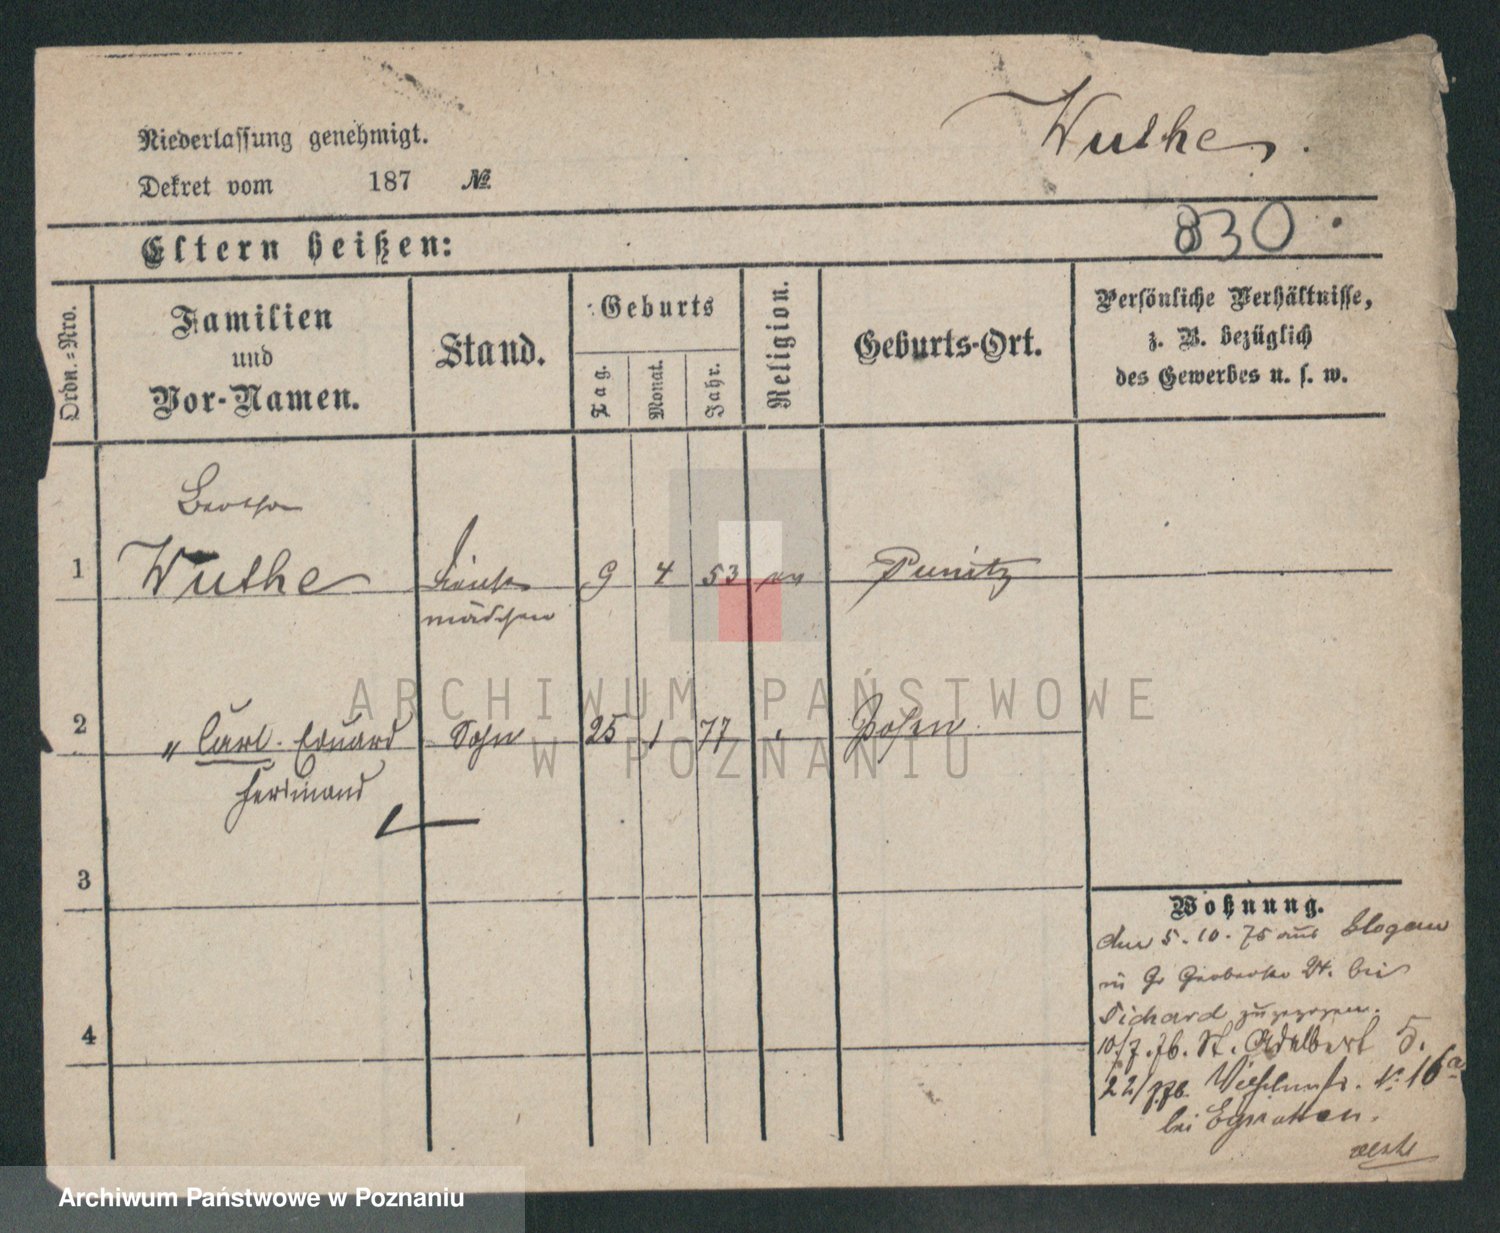 Niederlassung genehmigt.
Wuthe.
Dekret vom 187 №
830.
Eltern heißen:
Ordn.=Nro.
Familien
und
Vor-Namen.
Stand.
Geburts
Tag.
Monat.
Jahr.
Religion.
Geburts-Ort.
Persönliche Verhältnisse,
z. B. bezüglich
des Gewerbes u. s. w.
Bertha
1 Wuthe Dienst 9 4 53 ev Punitz
mädchen
2 " Carl Eduard Sohn 25 1 77 " Posen
Ferdinand
3
Wohnung.
den 5.10.75 aus Glogau
in Gr Gerberstr bei
zugezogen.
4
10/7.76. St. Adalbert 5.
22/ 76. Wilhelmstr. №. 16a
bei
ARCHIWUM PAŃSTWOWE
W POZNANIU
Archiwum Państwowe w Poznaniu